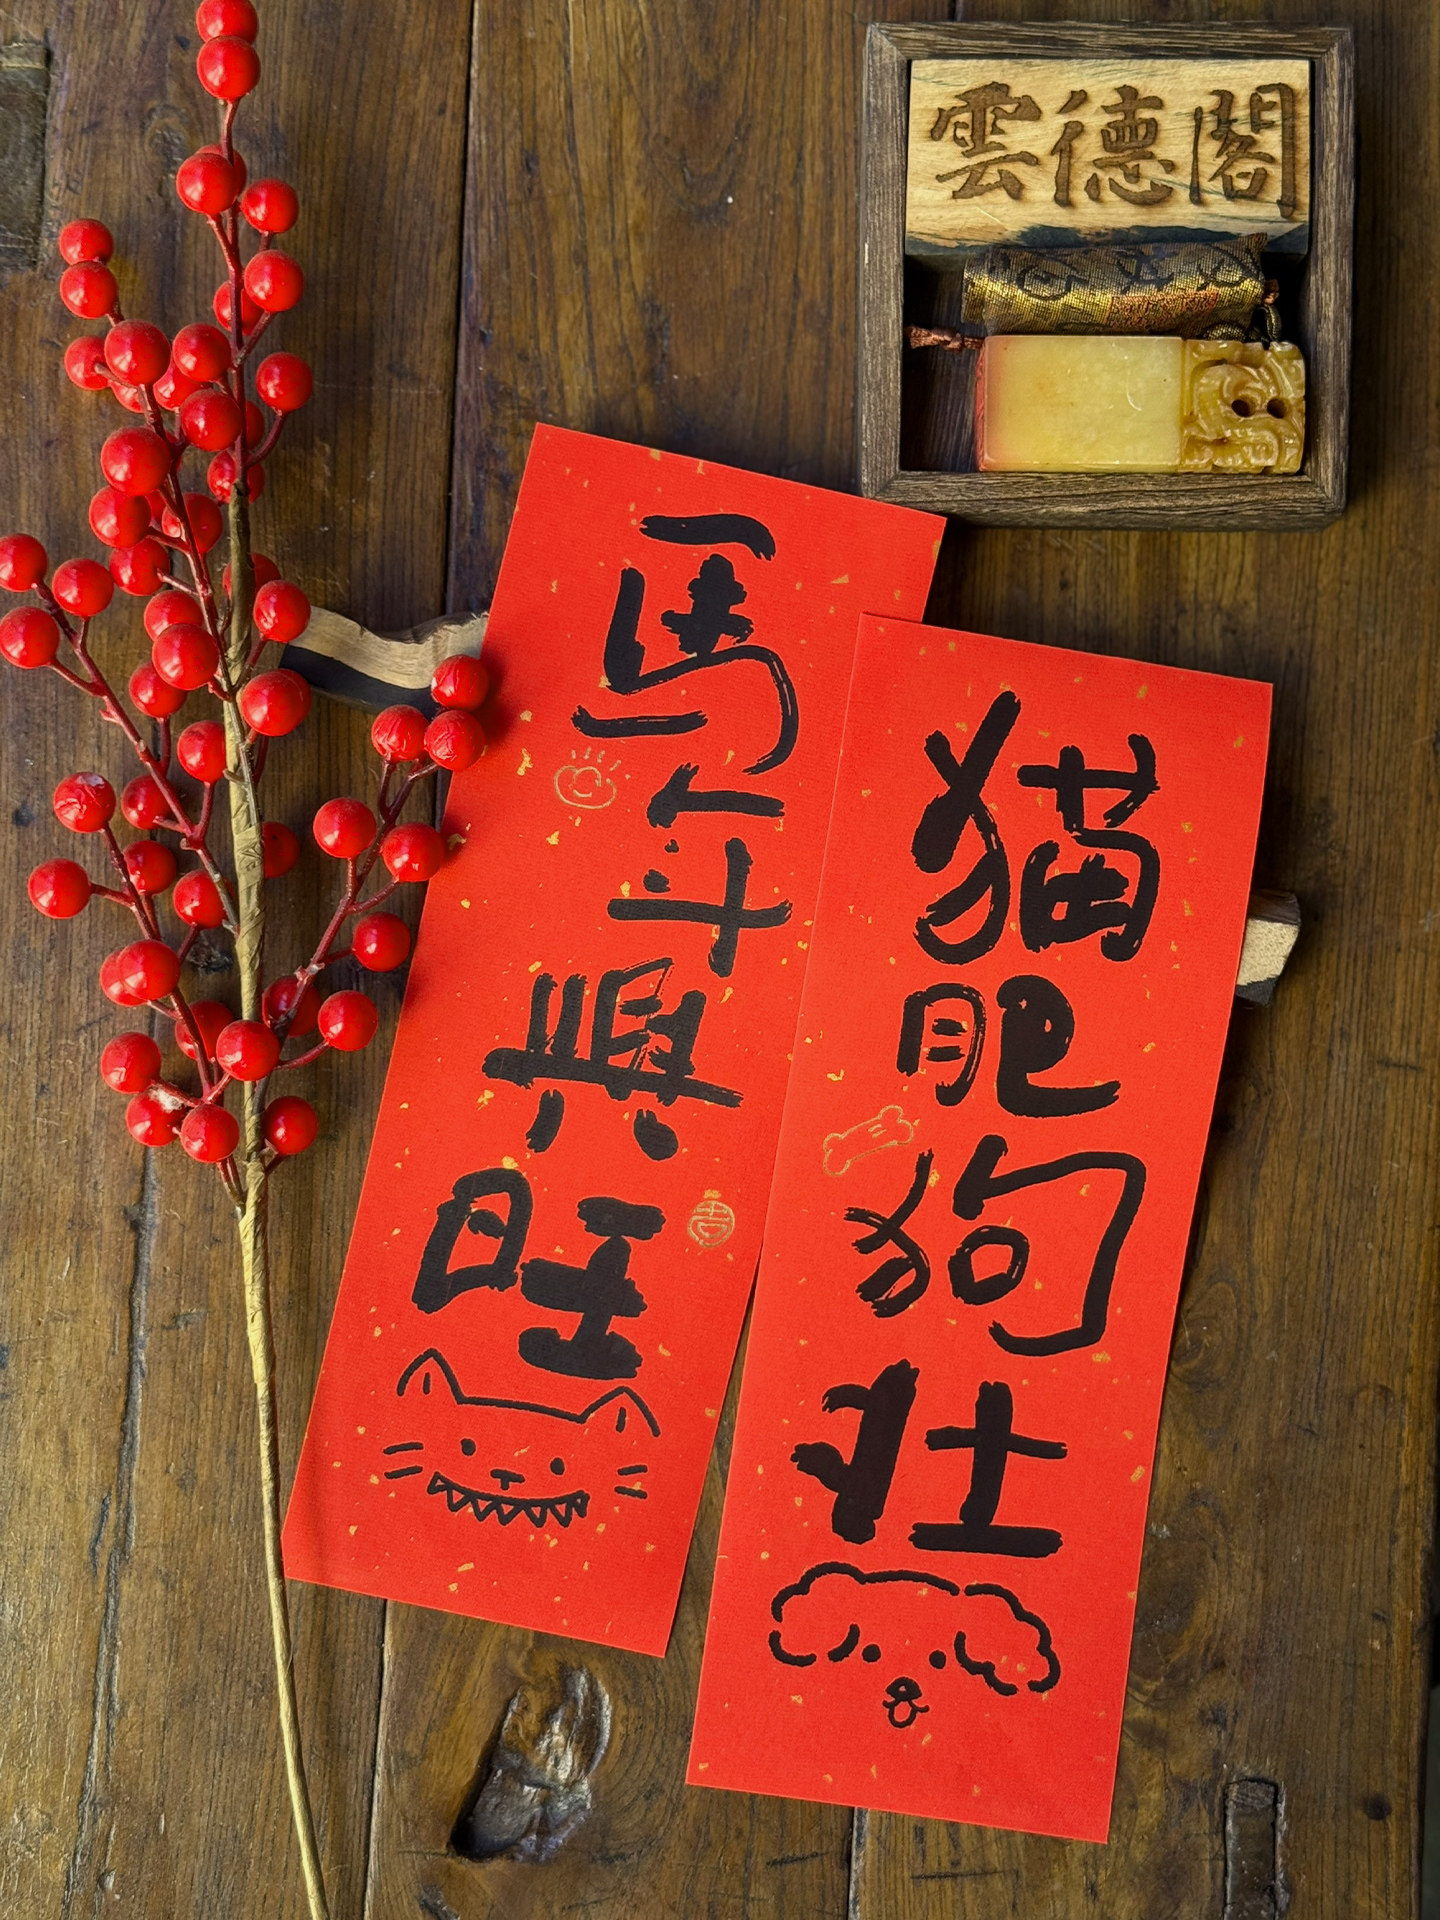 雲德閣
馬年興旺
吉
猫肥狗壮